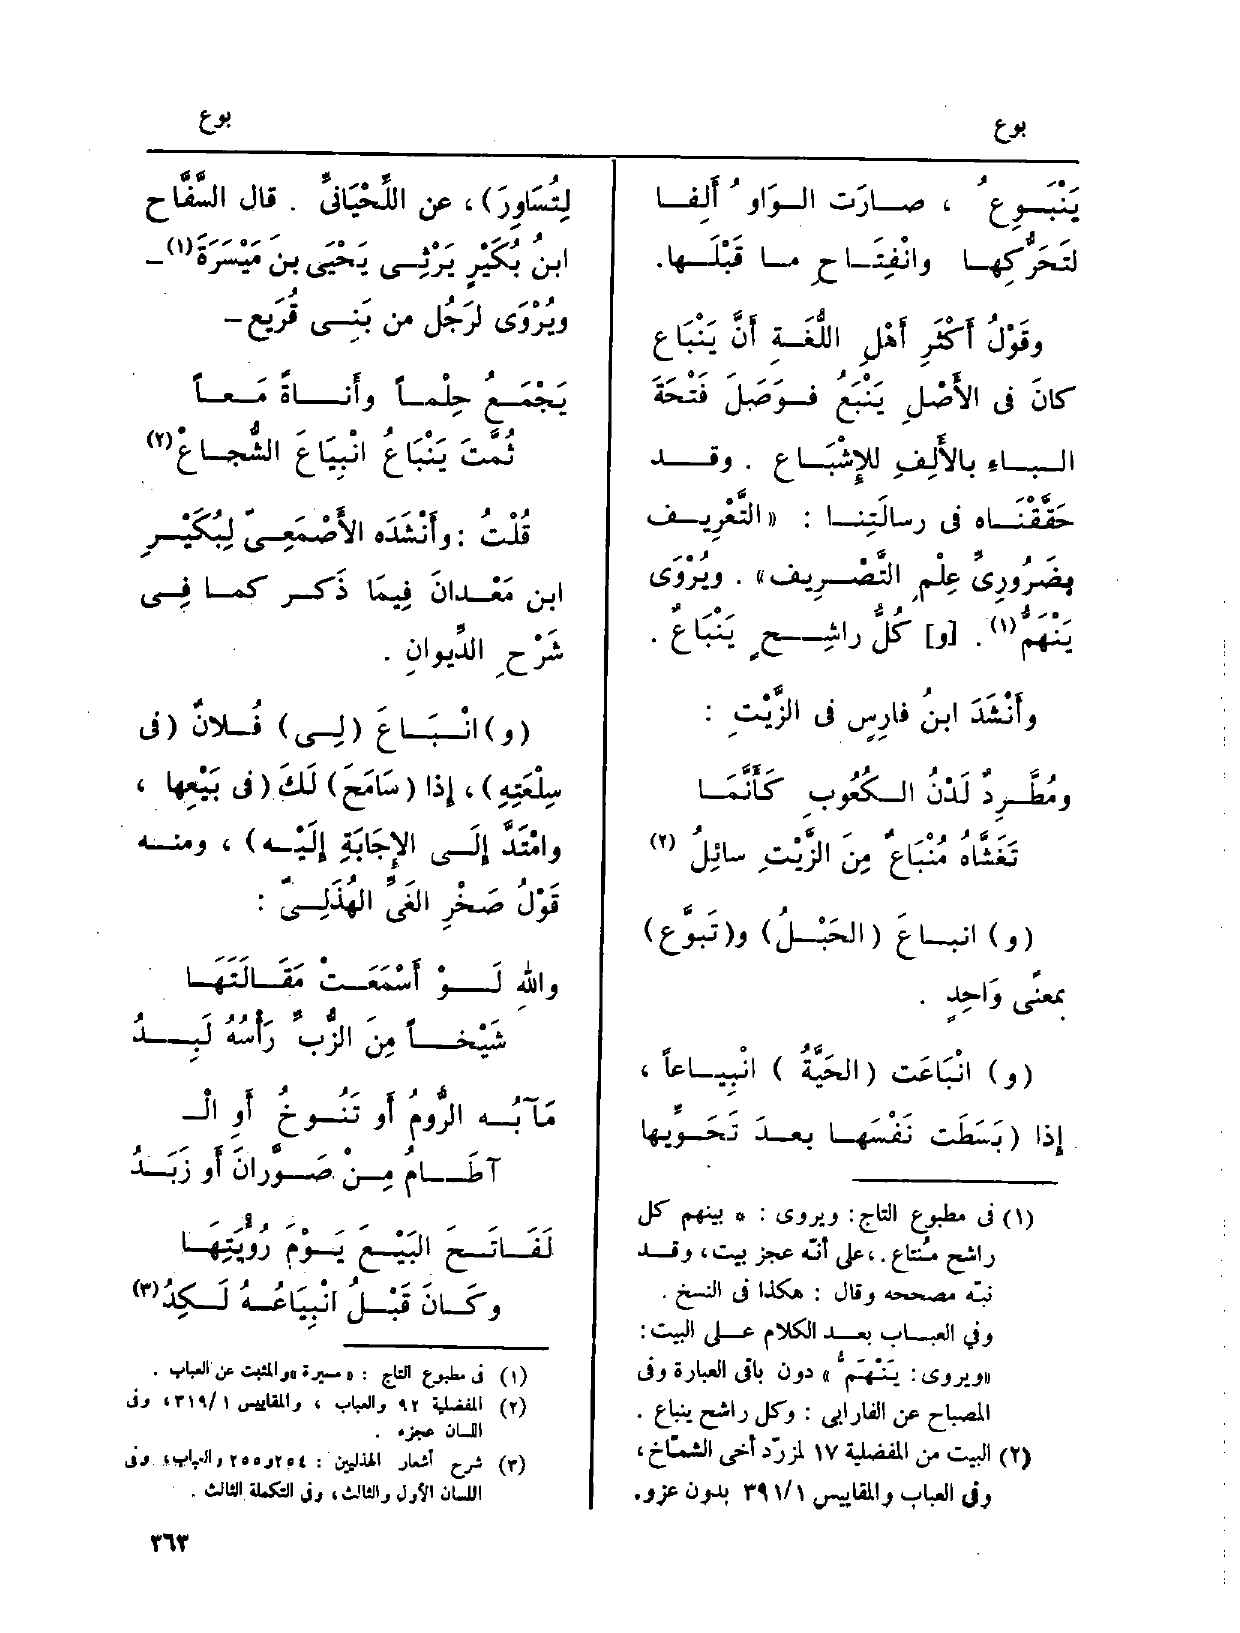 بوع
بوع
يَنْبَــوِعُ ، صــارَت الــوَاوُ أَلِفــا
لتَحَرُّكِهــا وانْفِتَــاحِ مــا قَبْلَــها.
وقَوْلُ أَكْثَرِ أَهْلِ اللُّغَــةِ أَنَّ يَنْبَاع
كانَ فى الأَصْلِ يَنْبَعُ فــوَصَلَ فَتْحَةَ
الــبــاء بالأَلِفِ للإِشْبَــاع . وقــد
حَقَّقْنَــاه فى رسالَتِنــا : «التَّعْرِيــف
بِضَرُورِىِّ عِلْمِ التَّصْــرِيف» . ويُرْوَى
يَنْهَمُّ(١). [و] كُلُّ راشِــحٍ يَنْبَاعُ .
وأَنْشَدَ ابنُ فارِسٍ فى الزَّيْتِ :
ومُطَّــرِدٌ لَدْنُ الــكُعُوبِ كَأَنَّمَــا
تَغَشَّاهُ مُنْبَاعٌ مِنَ الزَّيْتِ سائِلُ (٢)
(و) انبــاعَ (الحَبْــلُ) و(تَبَوَّع)
بمعنًى وَاحِدٍ .
(و) انْبَاعَت (الحَيَّةُ ) انْبِيــاعاً ،
إذا (بَسَطَت نَفْسَهــا بعــدَ تَحَــوِّيها
(١) فى مطبوع التاج: ويروى : * بينهم كل
راشح مُنْتاع . ،على أنّه عجز بيت، وقــد
نبّه مصححه وقال : هكذا فى النسخ .
وفي العبــاب بعــد الكلام عــلى البيت:
«ويروى: يَنْهَمُّ » دون باقى العبارة وفى
المصباح عن الفارابى : وكل راشح ينباع .
(٢) البيت من المفضلية ١٧ لمزرّد أخى الشمّاخ،
وفى العباب والمقاييس ٣٩١/١ بدون عزو.
لِتُسَاوِرَ) ، عن اللِّحْيَانِىِّ . قال السَّفَّاح
ابنُ بُكَيْرٍ يَرْثِــى يَحْيَى بنَ مَيْسَرَةَ(١) –
ويُرْوَى لرَجُل من بَنِــى قُرَيع–
يَجْمَــعُ حِلْمــاً وأَنــاةً مَــعــاً
ثُمَّتَ يَنْبَاعُ انْبِيَاعَ الشُّجــاعْ(٢)
قُلْتُ : وأَنْشَدَه الأَصْمَعِــىّ لبُكَيْــرِ
ابن مَعْــدانَ فِيمَا ذَكَــر كمــا فِــى
شَرْحِ الدِّيوانِ .
(و) انْــبَــاعَ (لِــى) فُــلانٌ (فى
سِلْعَتِهِ) ، إذا (سَامَحَ) لَكَ (فى بَيْعِها ،
وامْتَدَّ إلَــى الإِجَابَةِ إِلَيْــه) ، ومنــه
قَوْلُ صَخْرِ الغَىِّ الهُذَلِــىّ :
والله لَــوْ أَسْمَعَــتْ مَقَــالَتَهــا
شَيْخــاً مِنَ الزُّبِّ رَأْسُهُ لَبِــدُ
مَآبُــه الرُّومُ أَو تَنُــوخُ أَوِ الْـ
آطَــامُ مِــنْ صَــوَّرانَ أَو زَبَــدُ
لَفَــاتَــحَ البَيْــعَ يَــوْمَ رُؤْيَتِهــا
وكَــانَ قَبْــلُ انْبِيَاعُــهُ لَــكِدُ(٣)
(١) فى مطبوع التاج : «مسيرة» والمثبت عن العباب .
(٢) المفضلية ٩٢ والعباب ، والمقاييس ٣١٩/١، وفى
اللسان عجزه .
(٣) شرح أشعار الهذليين : ٢٥٤و٢٥٥ والعباب، وفى
اللسان الأول والثالث، وفى التكملة الثالث .
٣٦٣